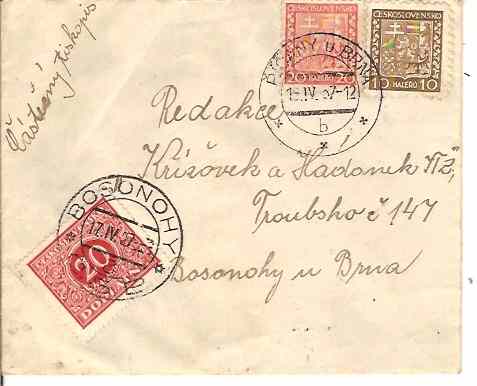 Částečný tiskopis
ČESKOSLOVENSKO
20 HALÉŘŮ 20
ČESKOSLOVENSKO
10 HALÉŘŮ 10
U BRNA
15.IV.37-12
* b *
*
Redakce
Křížovek a Hádanek "TŽ"
Troubsko č 147
Bosonohy u Brna
BOSONOHY
17.IV.37
20